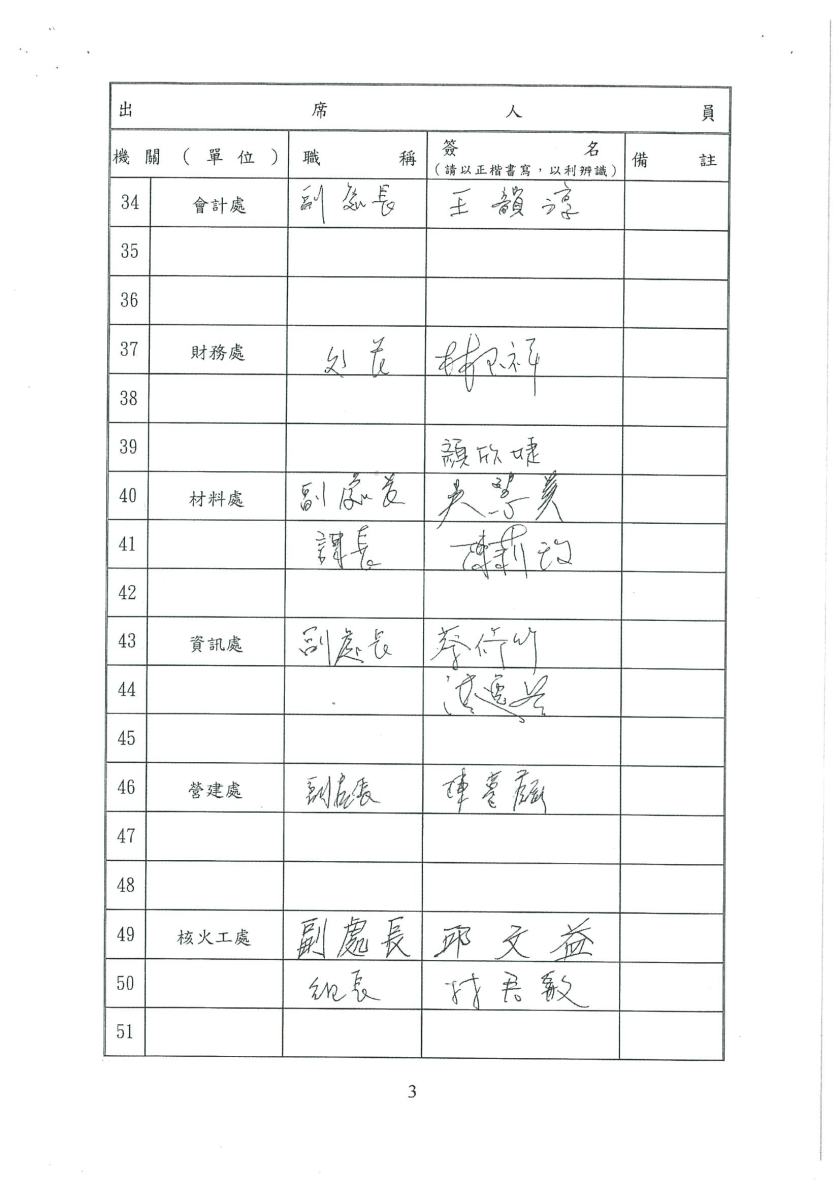 出 席 人 員
機關(單位) 職稱 簽名 備註
(請以正楷書寫，以利辨識)
34 會計處 副處長 王韻淳
35
36
37 財務處 處長 林 祥
38
39 顏欣婕
40 材料處 副處長 美
41 課長 陳莉
42
43 資訊處 副處長 蔡 竹
44
45
46 營建處 副處長 陳
47
48
49 核火工處 副處長 邱文益
50 組長 林君敏
51
3